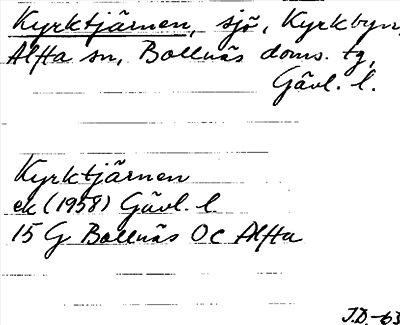 Kyrktjärnen, sjö, Kyrkbyn,
Alfta sn, Bollnäs doms. tg,
Gävl. l.
Kyrktjärnen
ek (1958) Gävl. l.
15 G Bollnäs OC Alfta
J.D. -63